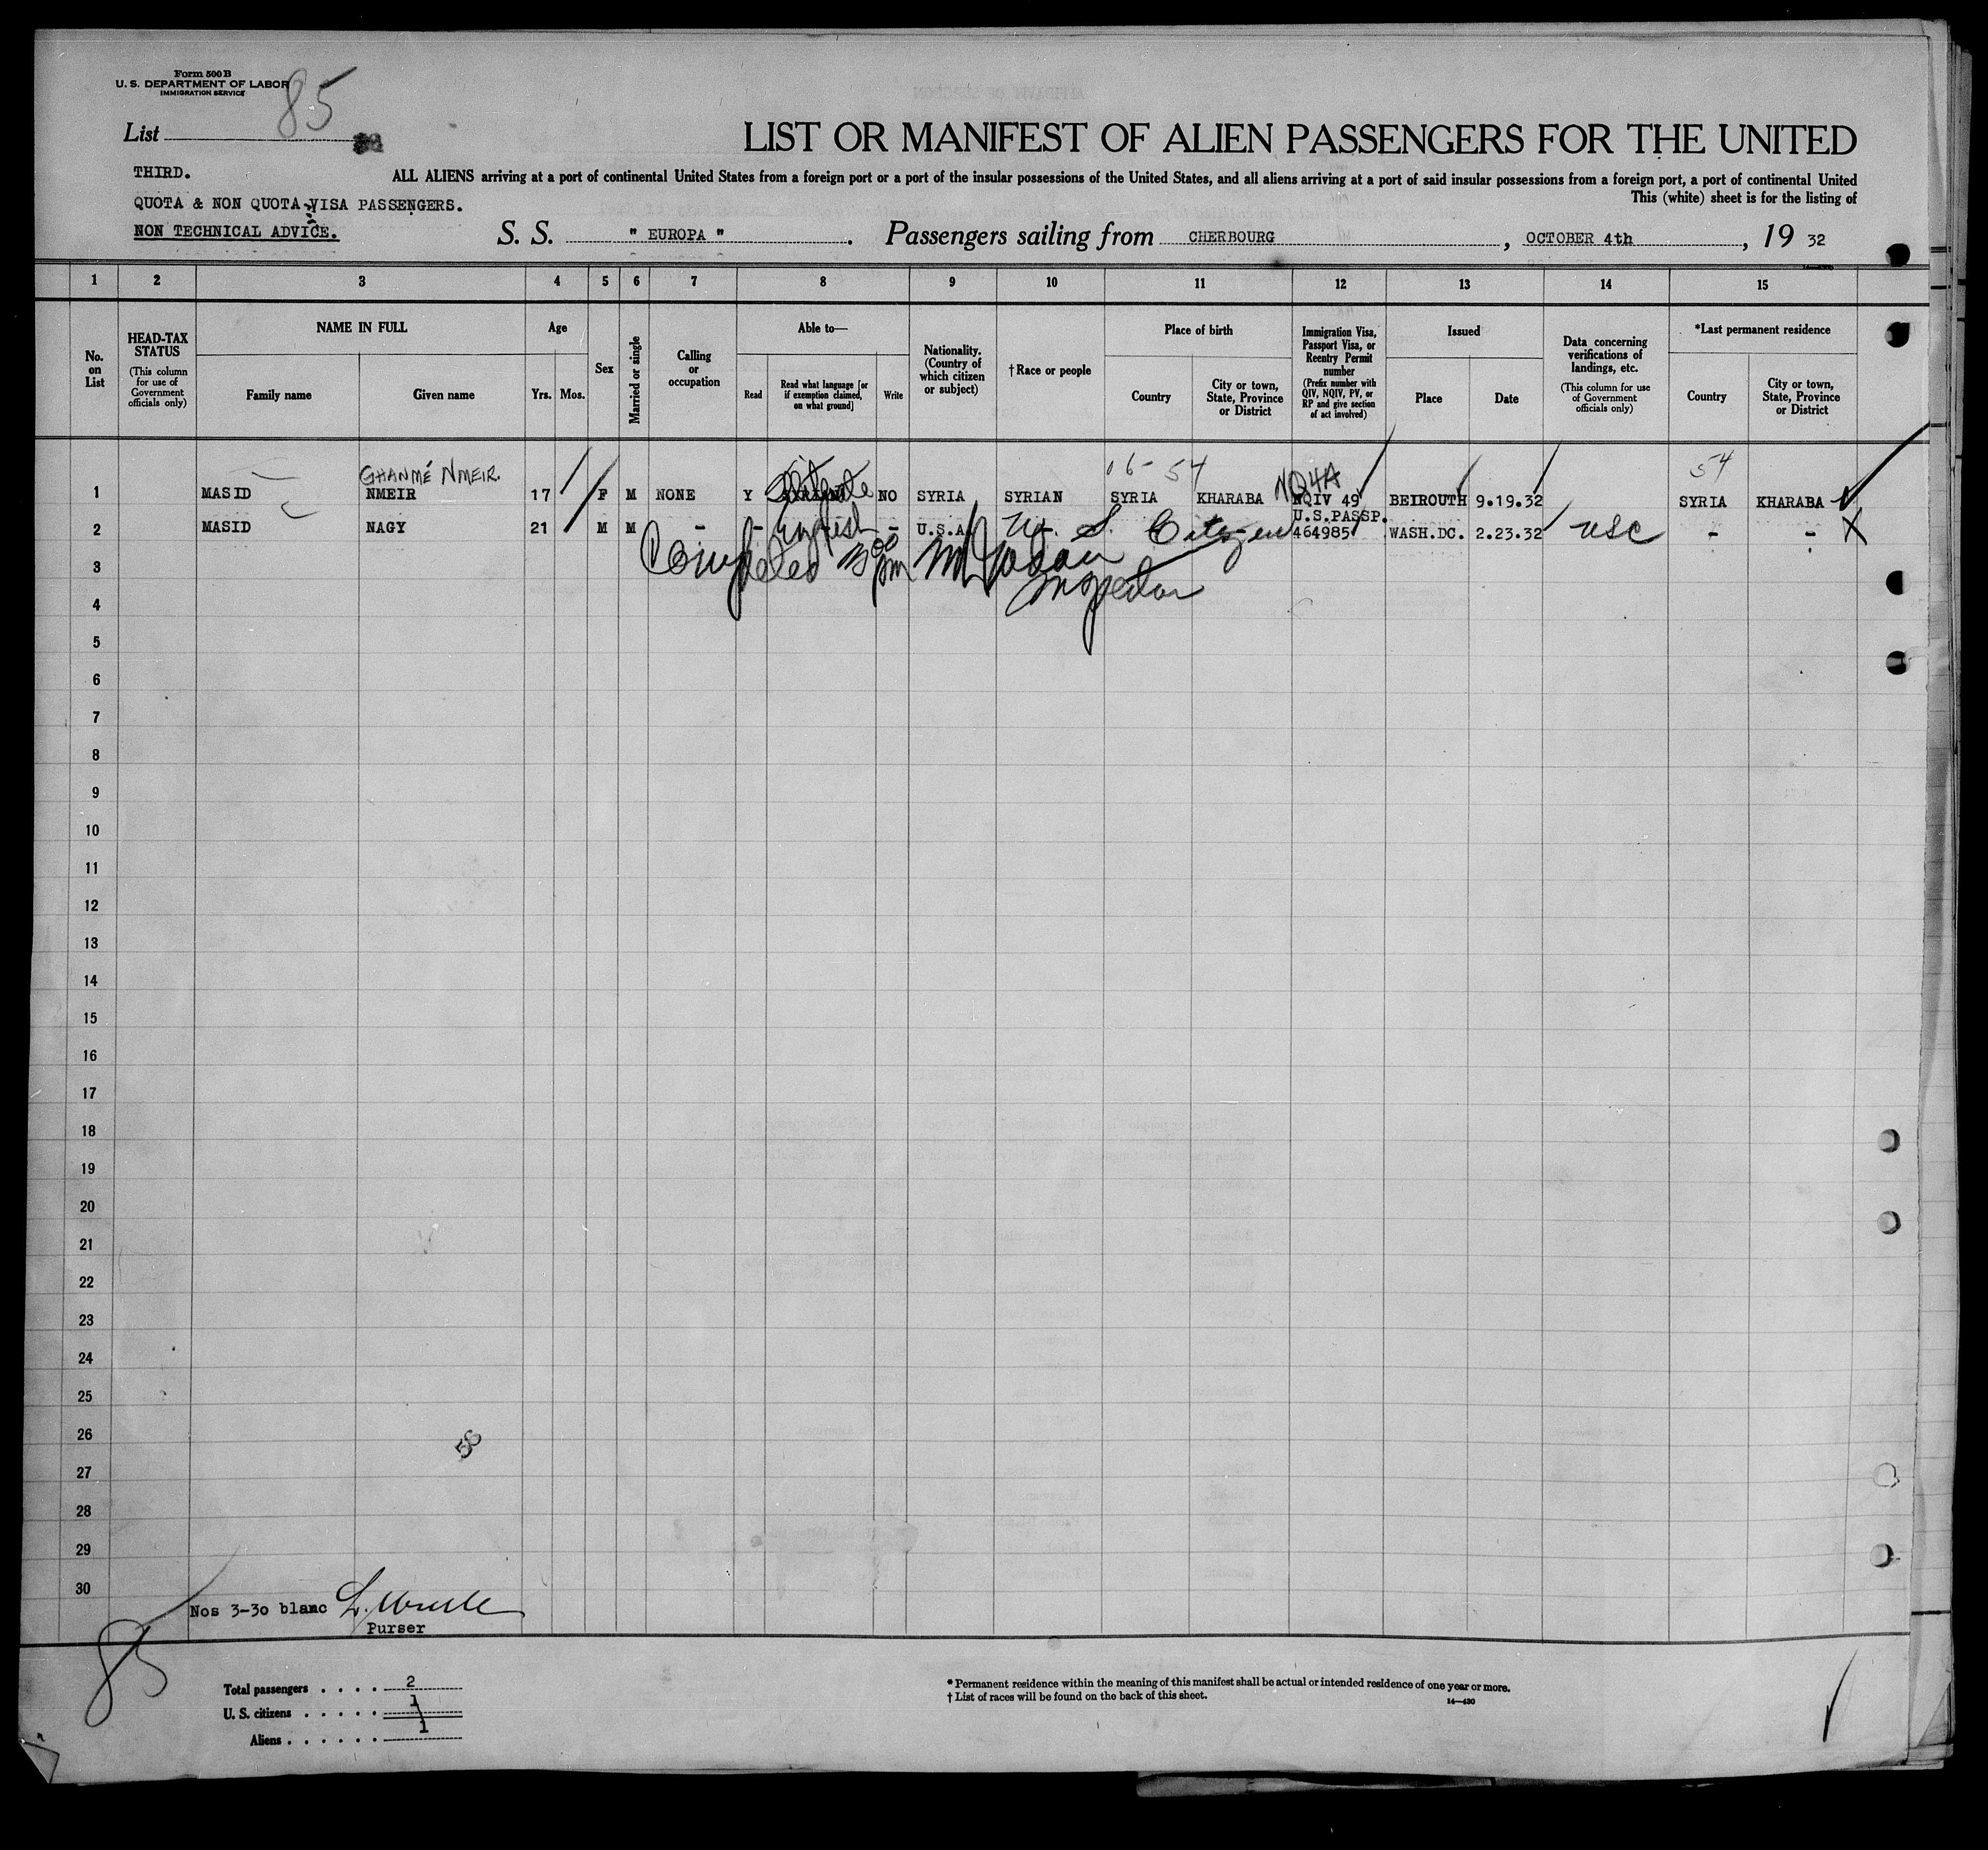 Form 500 B
U. S. DEPARTMENT OF LABOR
IMMIGRATION SERVICE
85
List
LIST OR MANIFEST OF ALIEN PASSENGERS FOR THE UNITED
THIRD.
ALL ALIENS arriving at a port of continental United States from a foreign port or a port of the insular possessions of the United States, and all aliens arriving at a port of said insular possessions from a foreign port, a port of continental United
QUOTA & NON QUOTA VISA PASSENGERS.
This (white) sheet is for the listing of
NON TECHNICAL ADVICE.
S. S. " EUROPA ". Passengers sailing from CHERBOURG, OCTOBER 4th, 19 32
1 2 3 4 5 6 7 8 9 10 11 12 13 14 15
No. on List
HEAD-TAX STATUS
(This column for use of Government officials only)
NAME IN FULL
Family name
Given name
Age
Yrs. Mos.
Sex
Married or single
Calling or occupation
Able to—
Read
Read what language [or if exemption claimed, on what ground]
Write
Nationality. (Country of which citizen or subject)
†Race or people
Place of birth
Country
City or town, State, Province or District
Immigration Visa, Passport Visa, or Reentry Permit number
(Prefix number with QIV, NQIV, PV, or RP and give section of act involved)
Issued
Place
Date
Data concerning verifications of landings, etc.
(This column for use of Government officials only)
*Last permanent residence
Country
City or town, State, Province or District
GHANMÉ NMEIR. 06- 54 NQ4A 54
1 MASID NMEIR 17 F M NONE Y NO SYRIA SYRIAN SYRIA KHARABA NQIV 49 BEIROUTH 9.19.32 SYRIA KHARABA
U.S.PASSP.
2 MASID NAGY 21 M M - - English - U.S.A. U. S. Citizen 464985 WASH.DC. 2.23.32 USC - - X
Completed
Inspector
3
4
5
6
7
8
9
10
11
12
13
14
15
16
17
18
19
20
21
22
23
24
25
26
27
28
29
30
Nos 3-30 blanc
Purser
85
Total passengers . . . . 2
U. S. citizens . . . . . 1
Aliens . . . . . . 1
* Permanent residence within the meaning of this manifest shall be actual or intended residence of one year or more.
† List of races will be found on the back of this sheet.
14—430